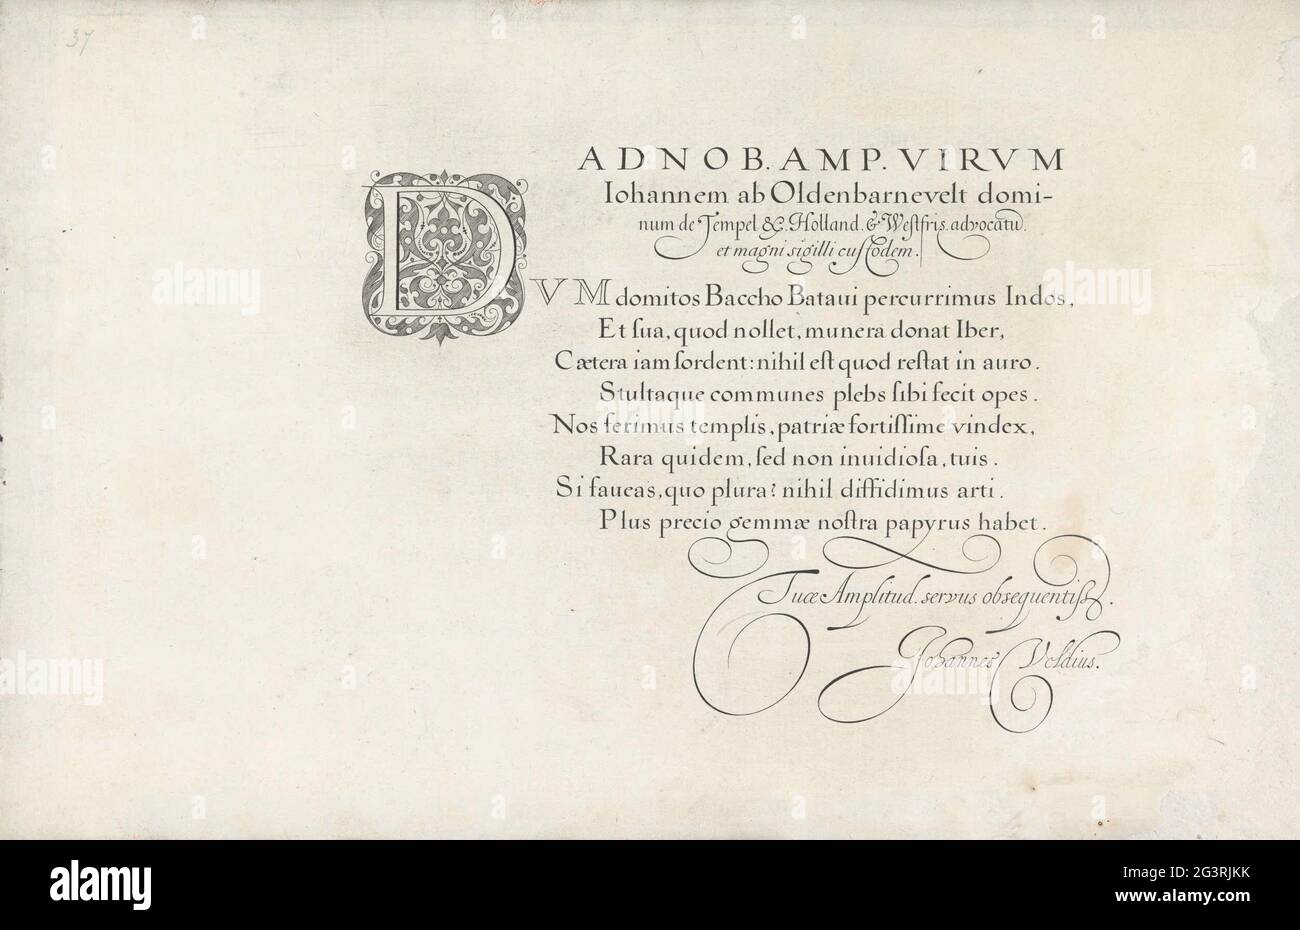 37
AD NOB. AMP. VIRVM
Iohannem ab Oldenbarnevelt domi-
num de Tempel &c. Holland. & Westfris. advocatū.
et magni sigilli custodem.
DVM domitos Baccho Bataui percurrimus Indos,
Et ſua, quod nollet, munera donat Iber,
Cætera iam ſordent: nihil eſt quod reſtat in auro.
Stultaque communes plebs ſibi fecit opes.
Nos ferimus templis, patriæ fortiſſime vindex,
Rara quidem, ſed non inuidioſa, tuis.
Si faueas, quo plura? nihil diffidimus arti.
Plus precio gemmæ noſtra papyrus habet.
Tuæ Amplitud. servus obsequentiſs.
Johannes Voldius.
alamy
Image ID: 2G3RJKK
www.alamy.com